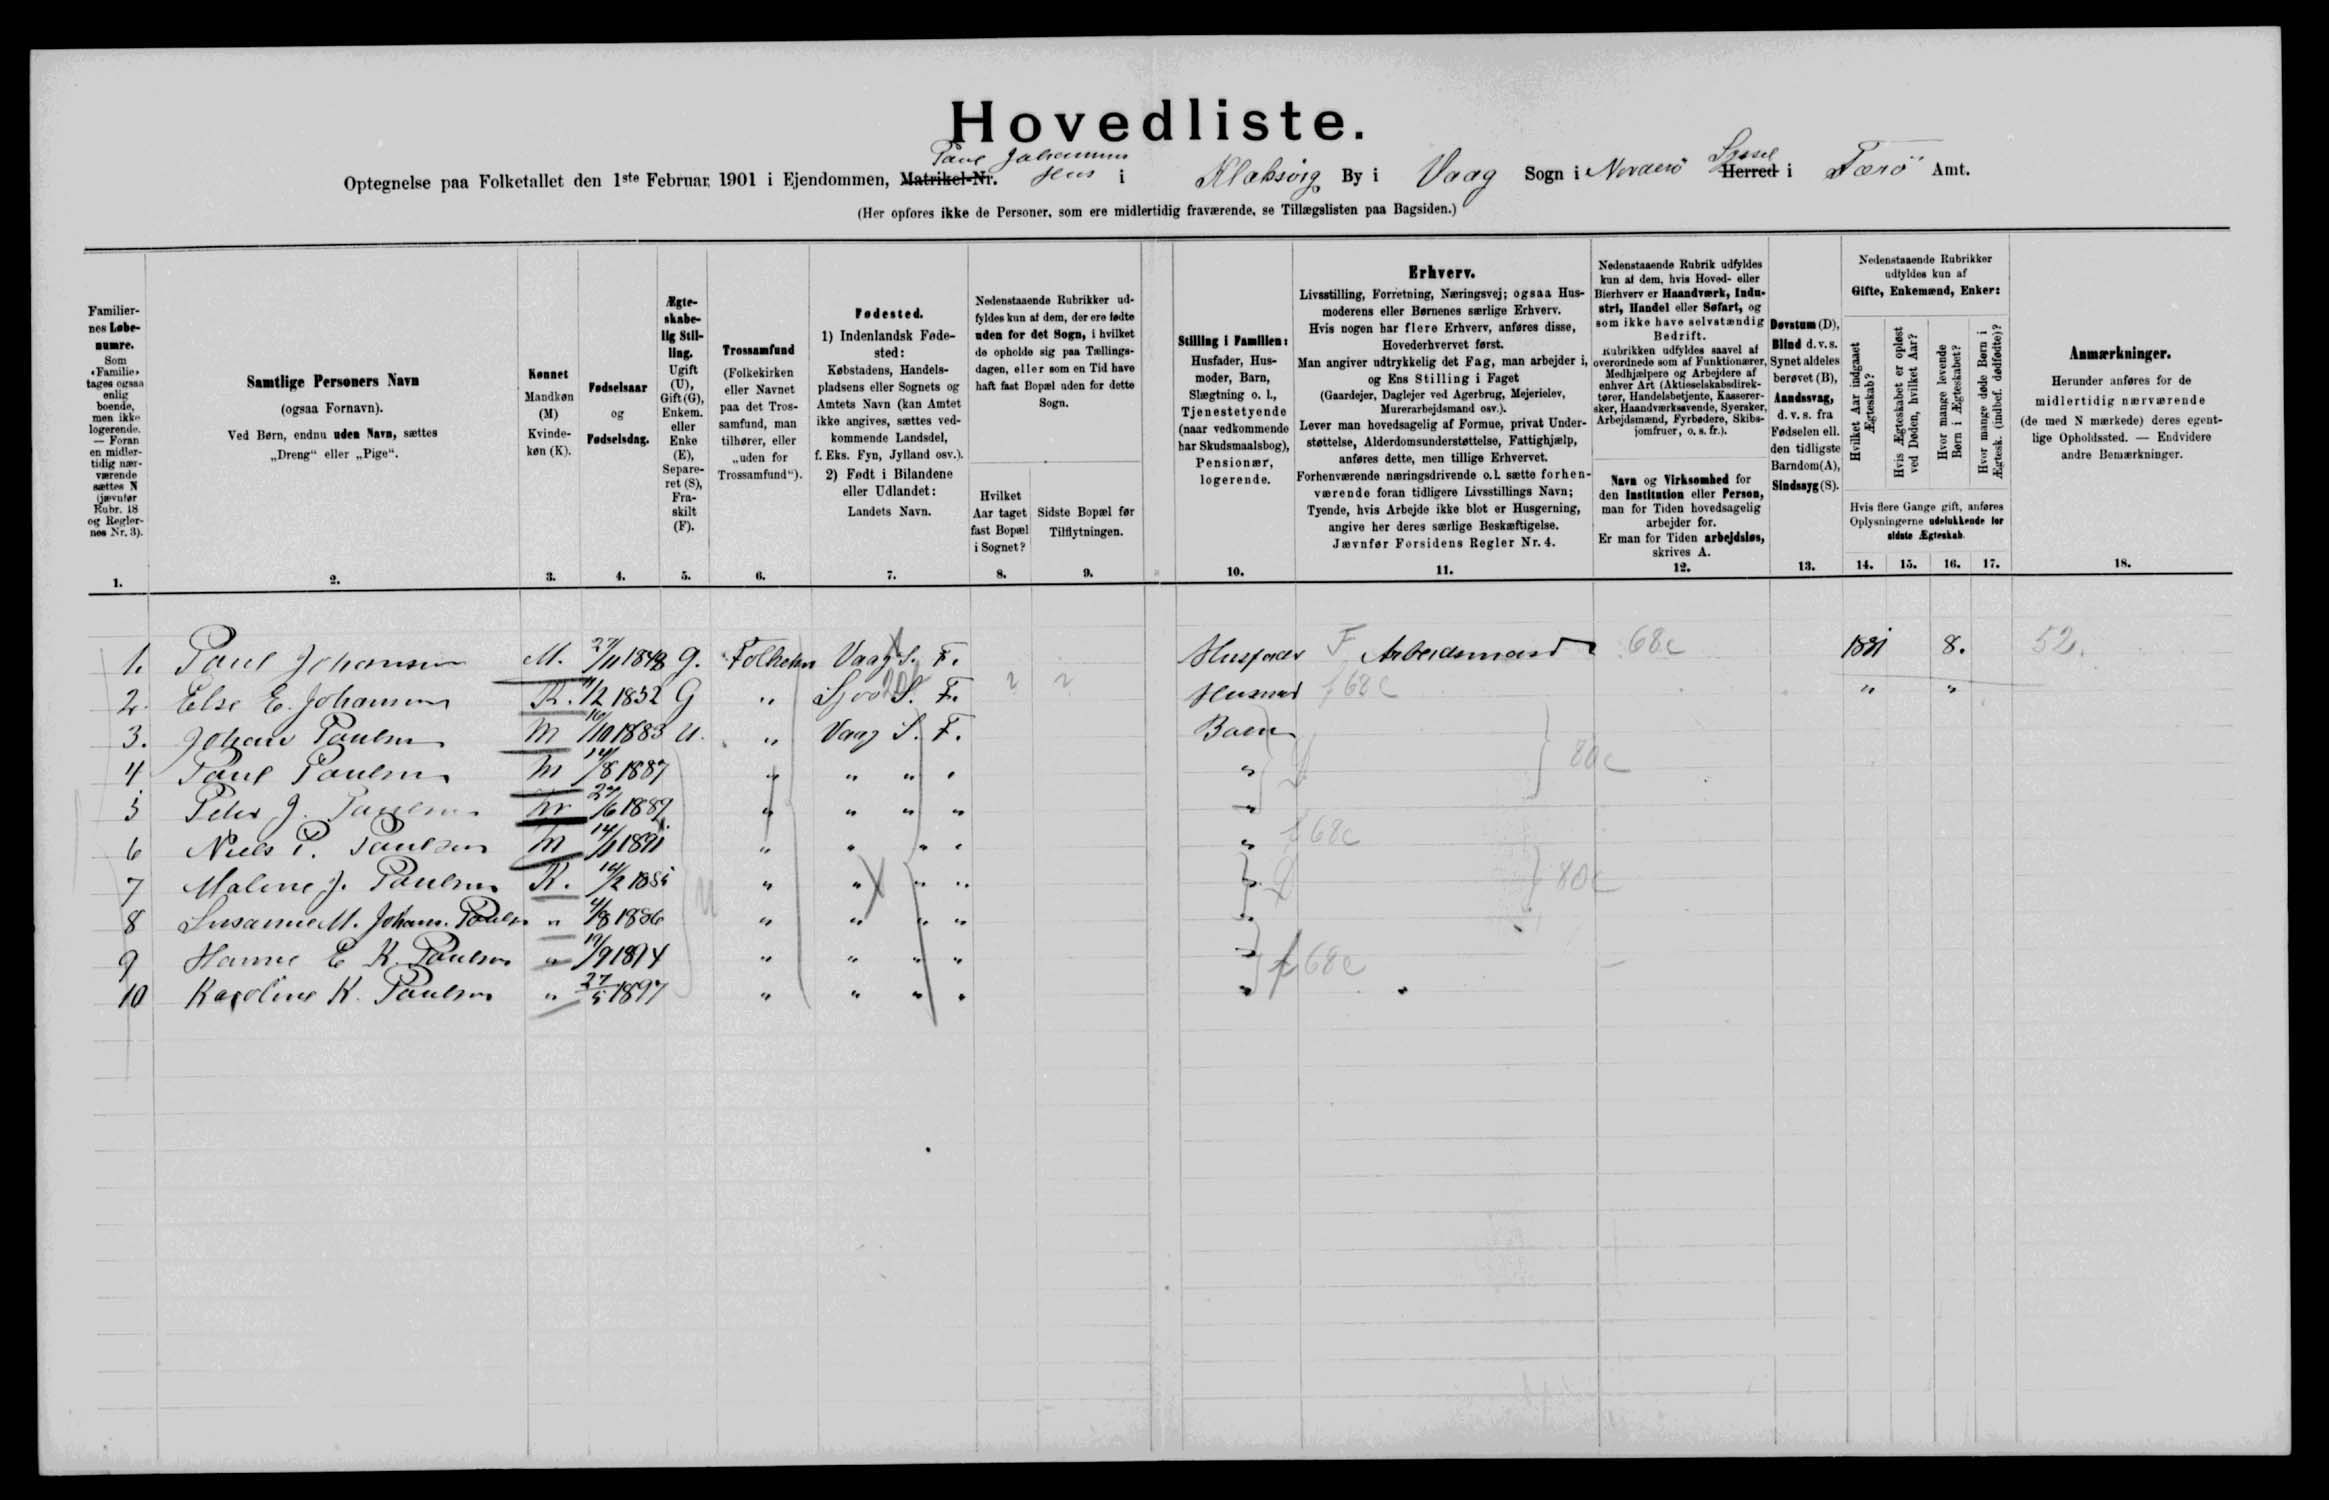 Hovedliste.
Paul Johansens
Optegnelse paa Folketallet den 1ste Februar 1901 i Ejendommen, Matrikel-Nr. Hus i Klaksvig By i Vaag Sogn i Norderö Herred Syssel i Færö Amt.
(Her opføres ikke de Personer, som ere midlertidig fraværende, se Tillægslisten paa Bagsiden.)
Familiernes Løbenumre.
Som «Familie» tages ogsaa enlig boende, men ikke logerende. — Foran en midlertidig nærværende sættes N (jævnfør Rubr. 18 og Reglernes Nr. 3).
1.
Samtlige Personers Navn
(ogsaa Fornavn).
Ved Børn, endnu uden Navn, sættes
„Dreng“ eller „Pige“.
2.
Kønnet
Mandkøn (M)
Kvindekøn (K).
3.
Fødselsaar
og
Fødselsdag.
4.
Ægteskabelig Stilling.
Ugift (U), Gift (G), Enkem. eller Enke (E), Separeret (S), Fraskilt (F).
5.
Trossamfund
(Folkekirken eller Navnet paa det Trossamfund, man tilhører, eller „uden for Trossamfund“).
6.
Fødested.
1) Indenlandsk Fødested:
Købstadens, Handelspladsens eller Sognets og Amtets Navn (kan Amtet ikke angives, sættes vedkommende Landsdel, f. Eks. Fyn, Jylland osv.).
2) Født i Bilandene eller Udlandet:
Landets Navn.
7.
Nedenstaaende Rubrikker udfyldes kun af dem, der ere fødte uden for det Sogn, i hvilket de opholde sig paa Tællingsdagen, eller som en Tid have haft fast Bopæl uden for dette Sogn.
Hvilket Aar taget fast Bopæl i Sognet?
8.
Sidste Bopæl før Tilflytningen.
9.
Stilling i Familien:
Husfader, Husmoder, Barn, Slægtning o. l., Tjenestetyende (naar vedkommende har Skudsmaalsbog), Pensionær, logerende.
10.
Erhverv.
Livsstilling, Forretning, Næringsvej; ogsaa Husmoderens eller Børnenes særlige Erhverv.
Hvis nogen har flere Erhverv, anføres disse, Hovederhvervet først.
Man angiver udtrykkelig det Fag, man arbejder i, og Ens Stilling i Faget
(Gaardejer, Daglejer ved Agerbrug, Mejerielev, Murerarbejdsmand osv.).
Lever man hovedsagelig af Formue, privat Understøttelse, Alderdomsunderstøttelse, Fattighjælp, anføres dette, men tillige Erhvervet.
Forhenværende næringsdrivende o. l. sætte forhenværende foran tidligere Livsstillings Navn;
Tyende, hvis Arbejde ikke blot er Husgerning, angive her deres særlige Beskæftigelse.
Jævnfør Forsidens Regler Nr. 4.
11.
Nedenstaaende Rubrik udfyldes kun af dem, hvis Hoved- eller Bierhverv er Haandværk, Industri, Handel eller Søfart, og som ikke have selvstændig Bedrift.
Rubrikken udfyldes saavel af overordnede som af Funktionærer, Medhjælpere og Arbejdere af enhver Art (Aktieselskabsdirektører, Handelsbetjente, Kasserersker, Haandværkssvende, Syersker, Arbejdsmænd, Fyrbødere, Skibsjomfruer, o. s. fr.).
Navn og Virksomhed for den Institution eller Person, man for Tiden hovedsagelig arbejder for.
Er man for Tiden arbejdsløs, skrives A.
12.
Døvstum (D), Blind d. v. s. Synet aldeles berøvet (B), Aandssvag, d. v. s. fra Fødselen ell. den tidligste Barndom (A), Sindssyg (S).
13.
Nedenstaaende Rubrikker udfyldes kun af
Gifte, Enkemænd, Enker:
Hvilket Aar indgaaet Ægteskab?
Hvis Ægteskabet er opløst ved Døden, hvilket Aar?
Hvor mange levende Børn i Ægteskabet?
Hvor mange døde Børn i Ægtesk. (indbef. dødfødte)?
Hvis flere Gange gift, anføres Oplysningerne udelukkende for sidste Ægteskab.
14. 15. 16. 17.
Anmærkninger.
Herunder anføres for de midlertidig nærværende (de med N mærkede) deres egentlige Opholdssted. — Endvidere andre Bemærkninger.
18.
1. Paul Johansen M. 27/11 1848 G. Folkekn Vaag S. F. Husfader F Arbeidsmand 68c 1881 8. 52.
2. Else E. Johansen K. 1852 G " S. F. ? ? Husmod f 68c " "
3. Johan Paulsen M 16/10 1883 U. " Vaag S. F. Barn
4 Paul Paulsen M 14/8 1887 " " " " " 80c
5 Peter J. Paulsen M 27/6 1889 " " " " "
6 Niels P. Paulsen M 14/1 1891 " " " " " f 68c
7 Malene J. Paulsen K. 14/2 1885 " " " " " 80c
8 Susanne M. Johans. Paulsen " 4/8 1886 " " " " "
9 Hanne E K. Paulsen " 19/9 1894 " " " " " f 68c
10 Karoline K. Paulsen " 27/5 1897 " " " " "